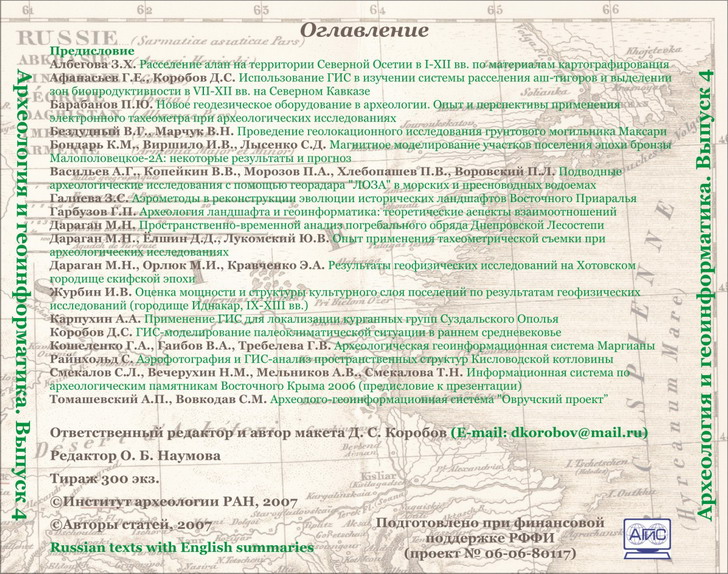 Оглавление
Предисловие
Албегова З.Х. Расселение алан на территории Северной Осетии в I-XII вв. по материалам картографирования
Афанасьев Г.Е., Коробов Д.С. Использование ГИС в изучении системы расселения аш-тигоров и выделении
зон биопродуктивности в VII-XII вв. на Северном Кавказе
Барабанов П.Ю. Новое геодезическое оборудование в археологии. Опыт и перспективы применения
электронного тахеометра при археологических исследованиях
Бездудный В.Г., Марчук В.Н. Проведение геолокационного исследования грунтового могильника Максари
Бондарь К.М., Виршило И.В., Лысенко С.Д. Магнитное моделирование участков поселения эпохи бронзы
Малополовецкое-2А: некоторые результаты и прогноз
Васильев А.Г., Копейкин В.В., Морозов П.А., Хлебопашев П.В., Воровский П.Л. Подводные
археологические исследования с помощью георадара "ЛОЗА" в морских и пресноводных водоемах
Галиева З.С. Аэрометоды в реконструкции эволюции исторических ландшафтов Восточного Приаралья
Гарбузов Г.П. Археология ландшафта и геоинформатика: теоретические аспекты взаимоотношений
Дараган М.Н. Пространственно-временной анализ погребального обряда Днепровской Лесостепи
Дараган М.Н., Ёлшин Д.Д., Лукомский Ю.В. Опыт применения тахеометрической съемки при
археологических исследованиях
Дараган М.Н., Орлюк М.И., Кравченко Э.А. Результаты геофизических исследований на Хотовском
городище скифской эпохи
Журбин И.В. Оценка мощности и структуры культурного слоя поселений по результатам геофизических
исследований (городище Иднакар, IX-XIII вв.)
Карпухин А.А. Применение ГИС для локализации курганных групп Суздальского Ополья
Коробов Д.С. ГИС-моделирование палеоклиматической ситуации в раннем средневековье
Кошеленко Г.А., Гаибов В.А., Требелева Г.В. Археологическая геоинформационная система Маргианы
Райнхольд С. Аэрофотография и ГИС-анализ пространственных структур Кисловодской котловины
Смекалов С.Л., Вечерухин Н.М., Мельников А.В., Смекалова Т.Н. Информационная система по
археологическим памятникам Восточного Крыма 2006 (предисловие к презентации)
Томашевский А.П., Вовкодав С.М. Археолого-геоинформационная система "Овручский проект"
Ответственный редактор и автор макета Д. С. Коробов (E-mail: dkorobov@mail.ru)
Редактор О. Б. Наумова
Тираж 300 экз.
©Институт археологии РАН, 2007
©Авторы статей, 2007
Russian texts with English summaries
Подготовлено при финансовой
поддержке РФФИ
(проект № 06-06-80117)
АГИС
Археология и геоинформатика. Выпуск 4
Археология и геоинформатика. Выпуск 4
61
62
63
64
65
66
RUSSIE (Sarmatiae asiaticae Pars)
Desert
Kisliar